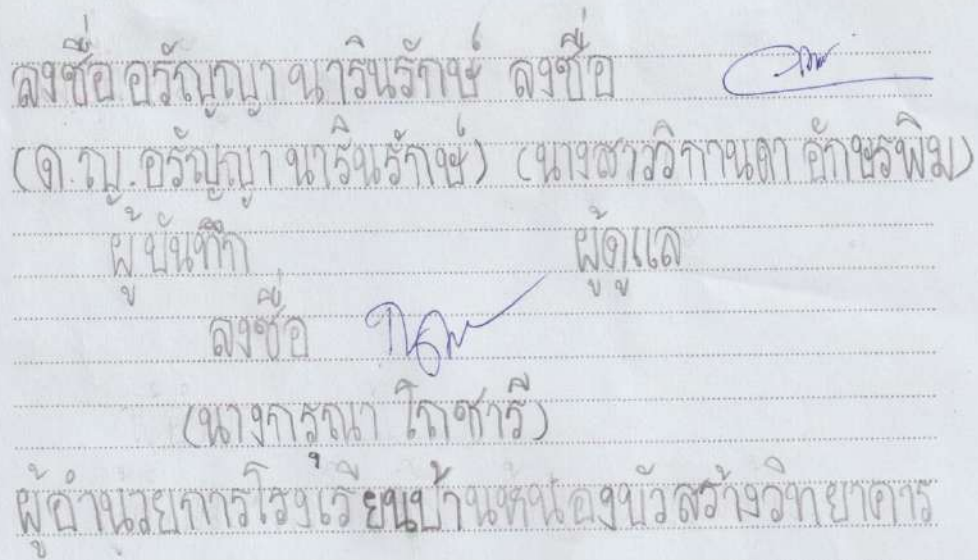 ลงชื่อ อรัญญา นารินรักษ์ ลงชื่อ
(ด.ญ.อรัญญา นารินรักษ์) (นางสาววิกานดา อักษรพิม)
ผู้บันทึก ผู้ดูแล
ลงชื่อ
(นางกรุณา โถชารี)
ผู้อำนวยการโรงเรียนบ้านหนองบัวสร้างวิทยาคาร